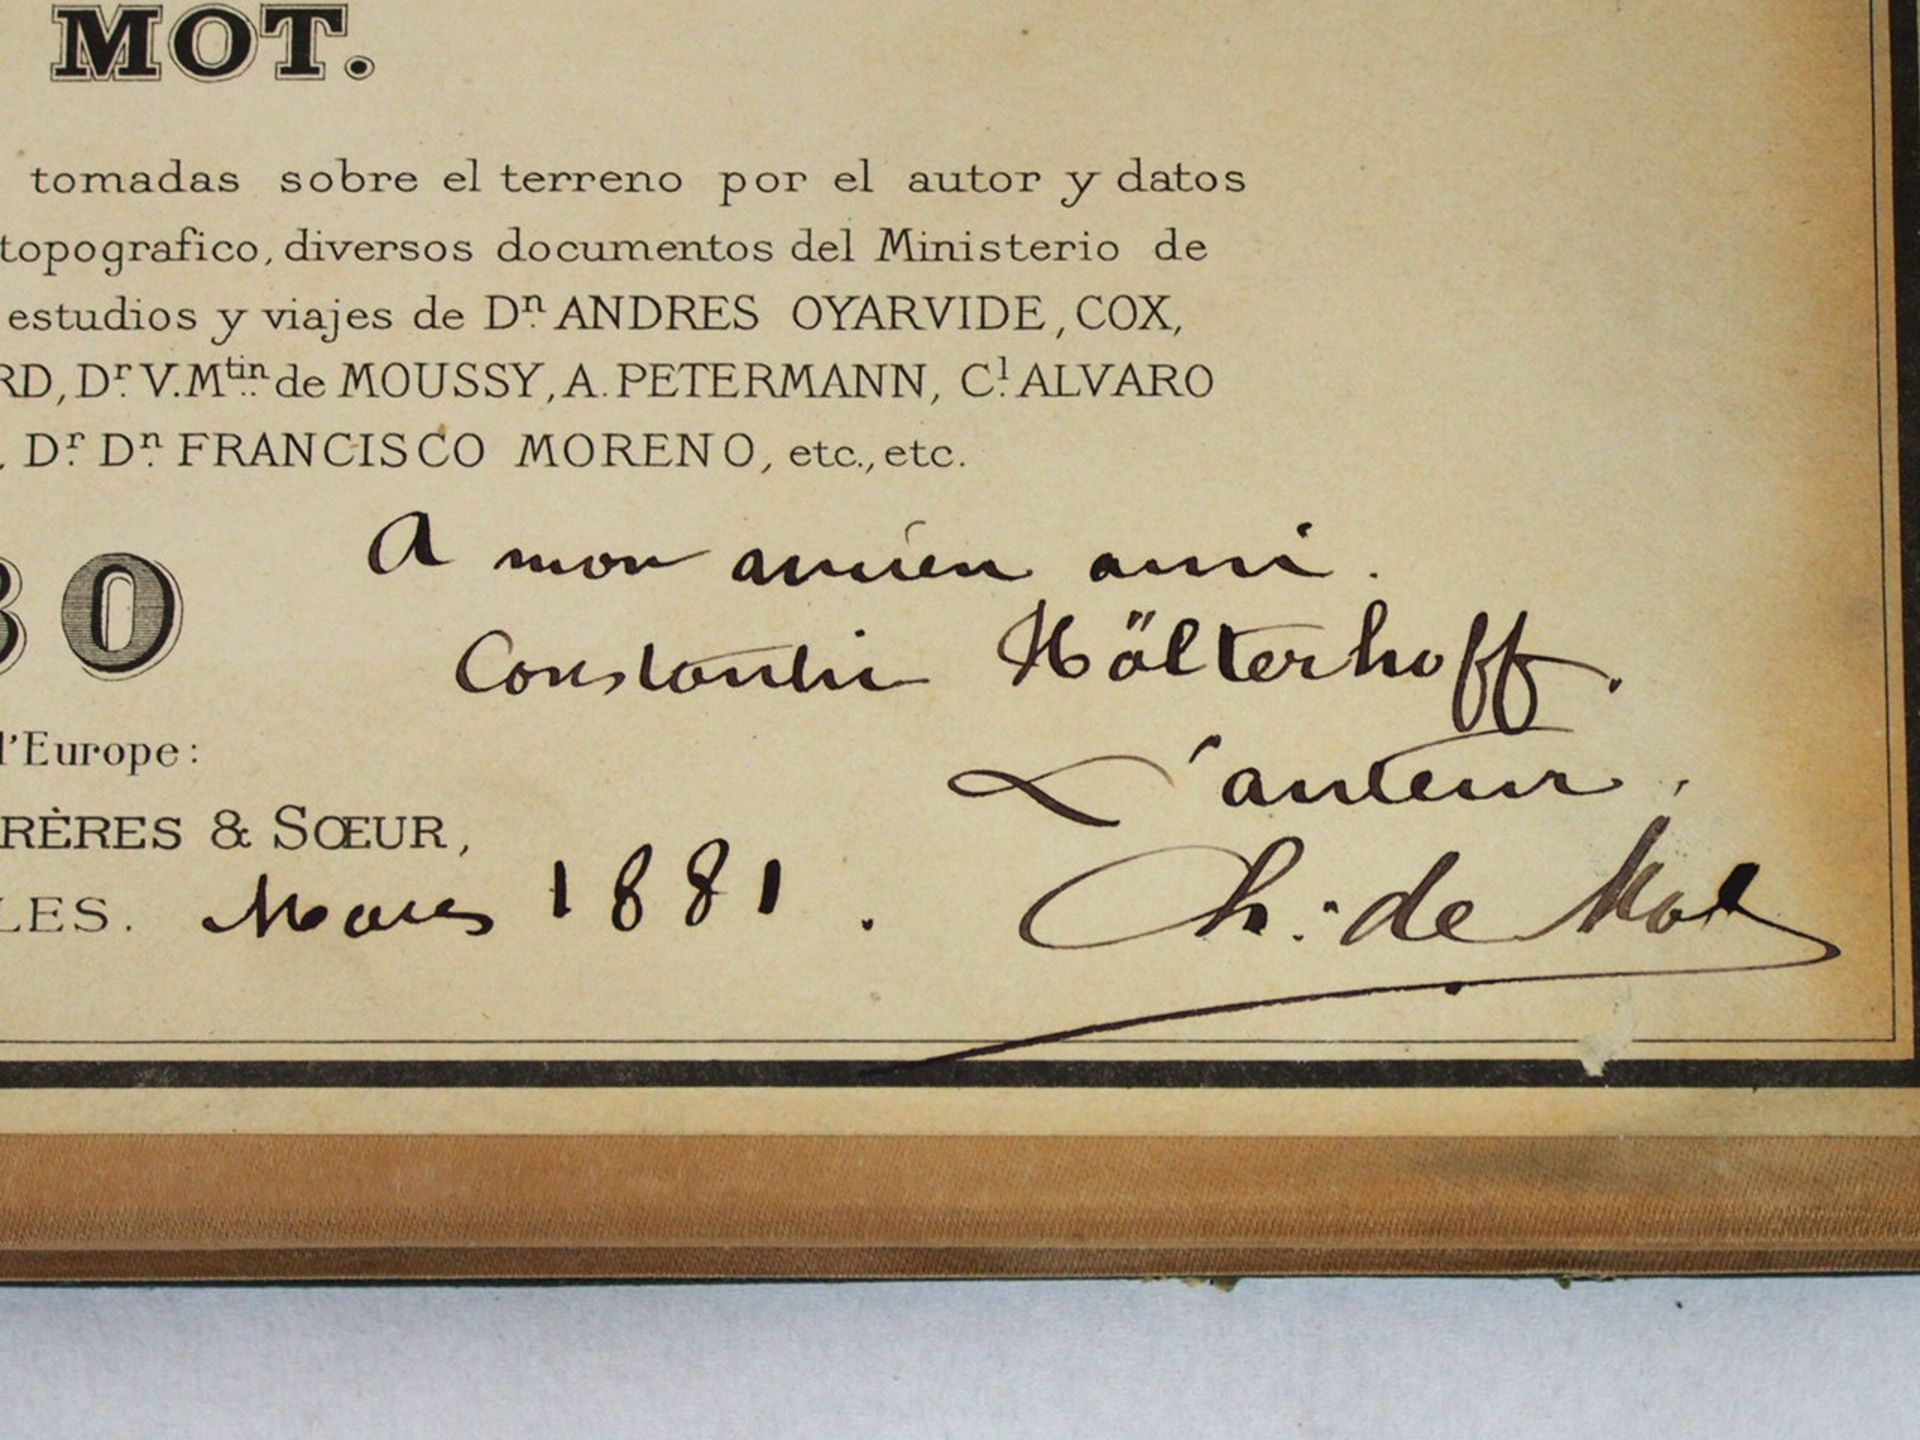 MOT.
tomadas sobre el terreno por el autor y datos
topografico, diversos documentos del Ministerio de
estudios y viajes de Dn. ANDRES OYARVIDE, COX,
RD, Dr. V. Mtin. de MOUSSY, A. PETERMANN, Cl. ALVARO
, Dr. Dn. FRANCISCO MORENO, etc., etc.
A mon ancien ami.
80
Constantin Hölterhoff.
l'Europe:
L'auteur.
RÈRES & SŒUR,
LES. Mars 1881.
Ch. de Mot